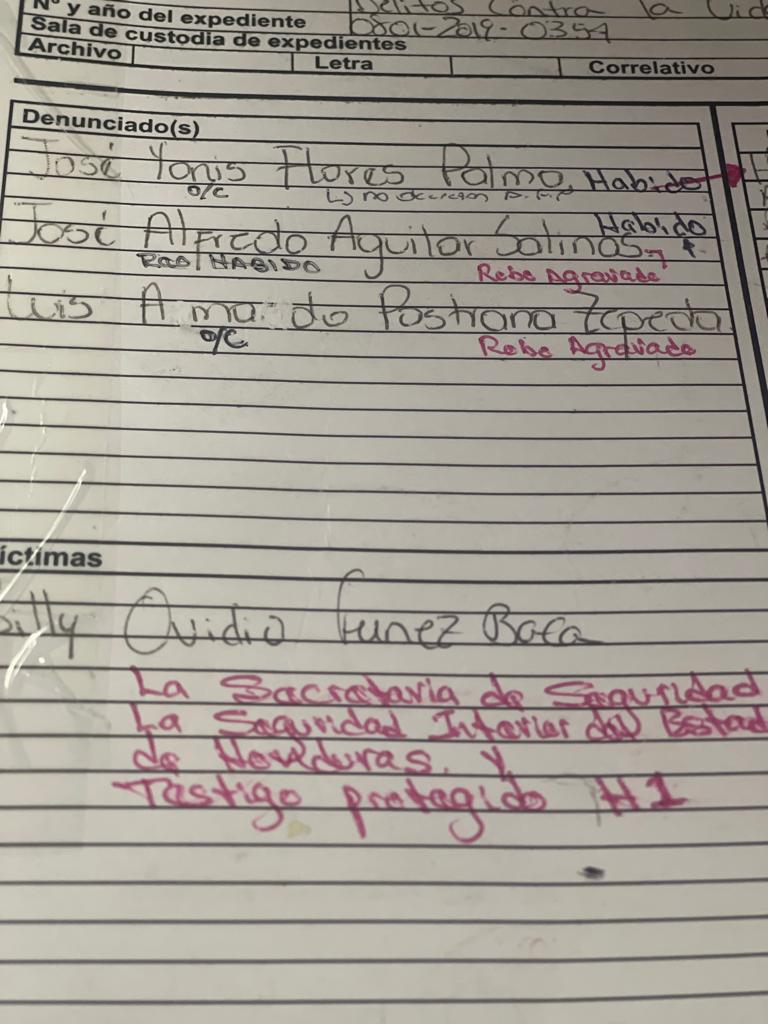 Nº y año del expediente
Delitos Contra la Vida
Sala de custodia de expedientes
0801-2019-0354
Archivo Letra Correlativo
Denunciado(s)
José Yonis Flores Palma, Habido
o/c
José Alfredo Aguilar Salinas Habido
Reo/HABIDO Robo Agravado
Luis Amando Pastrana Zepeda
o/c Robo Agravado
íctimas
Ovidio Funez Baca
La Sacrataria de Saguridad
La Saguridad Interior dal Estad
de Honduras. y
Tastigo protagido #1